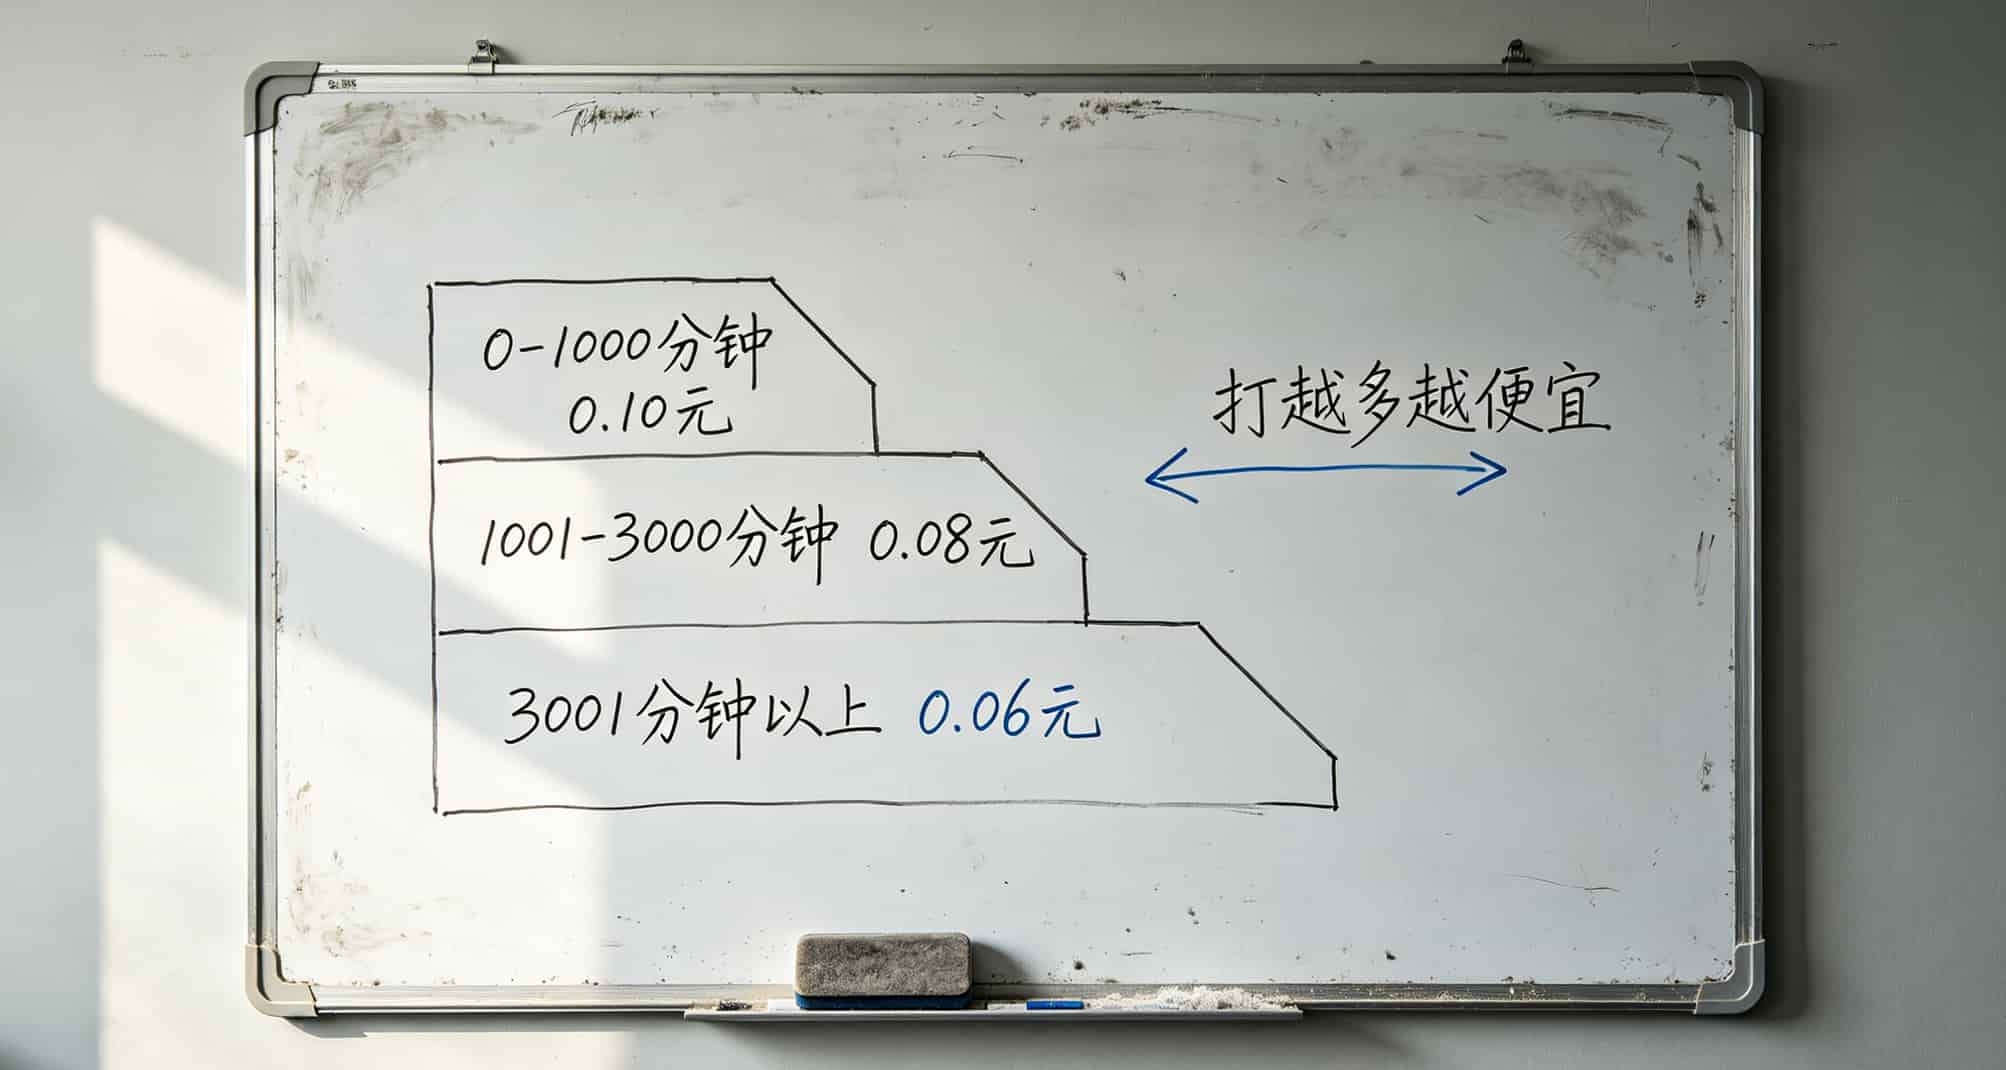 0-1000分钟
0.10元
打越多越便宜
1001-3000分钟 0.08元
3001分钟以上 0.06元